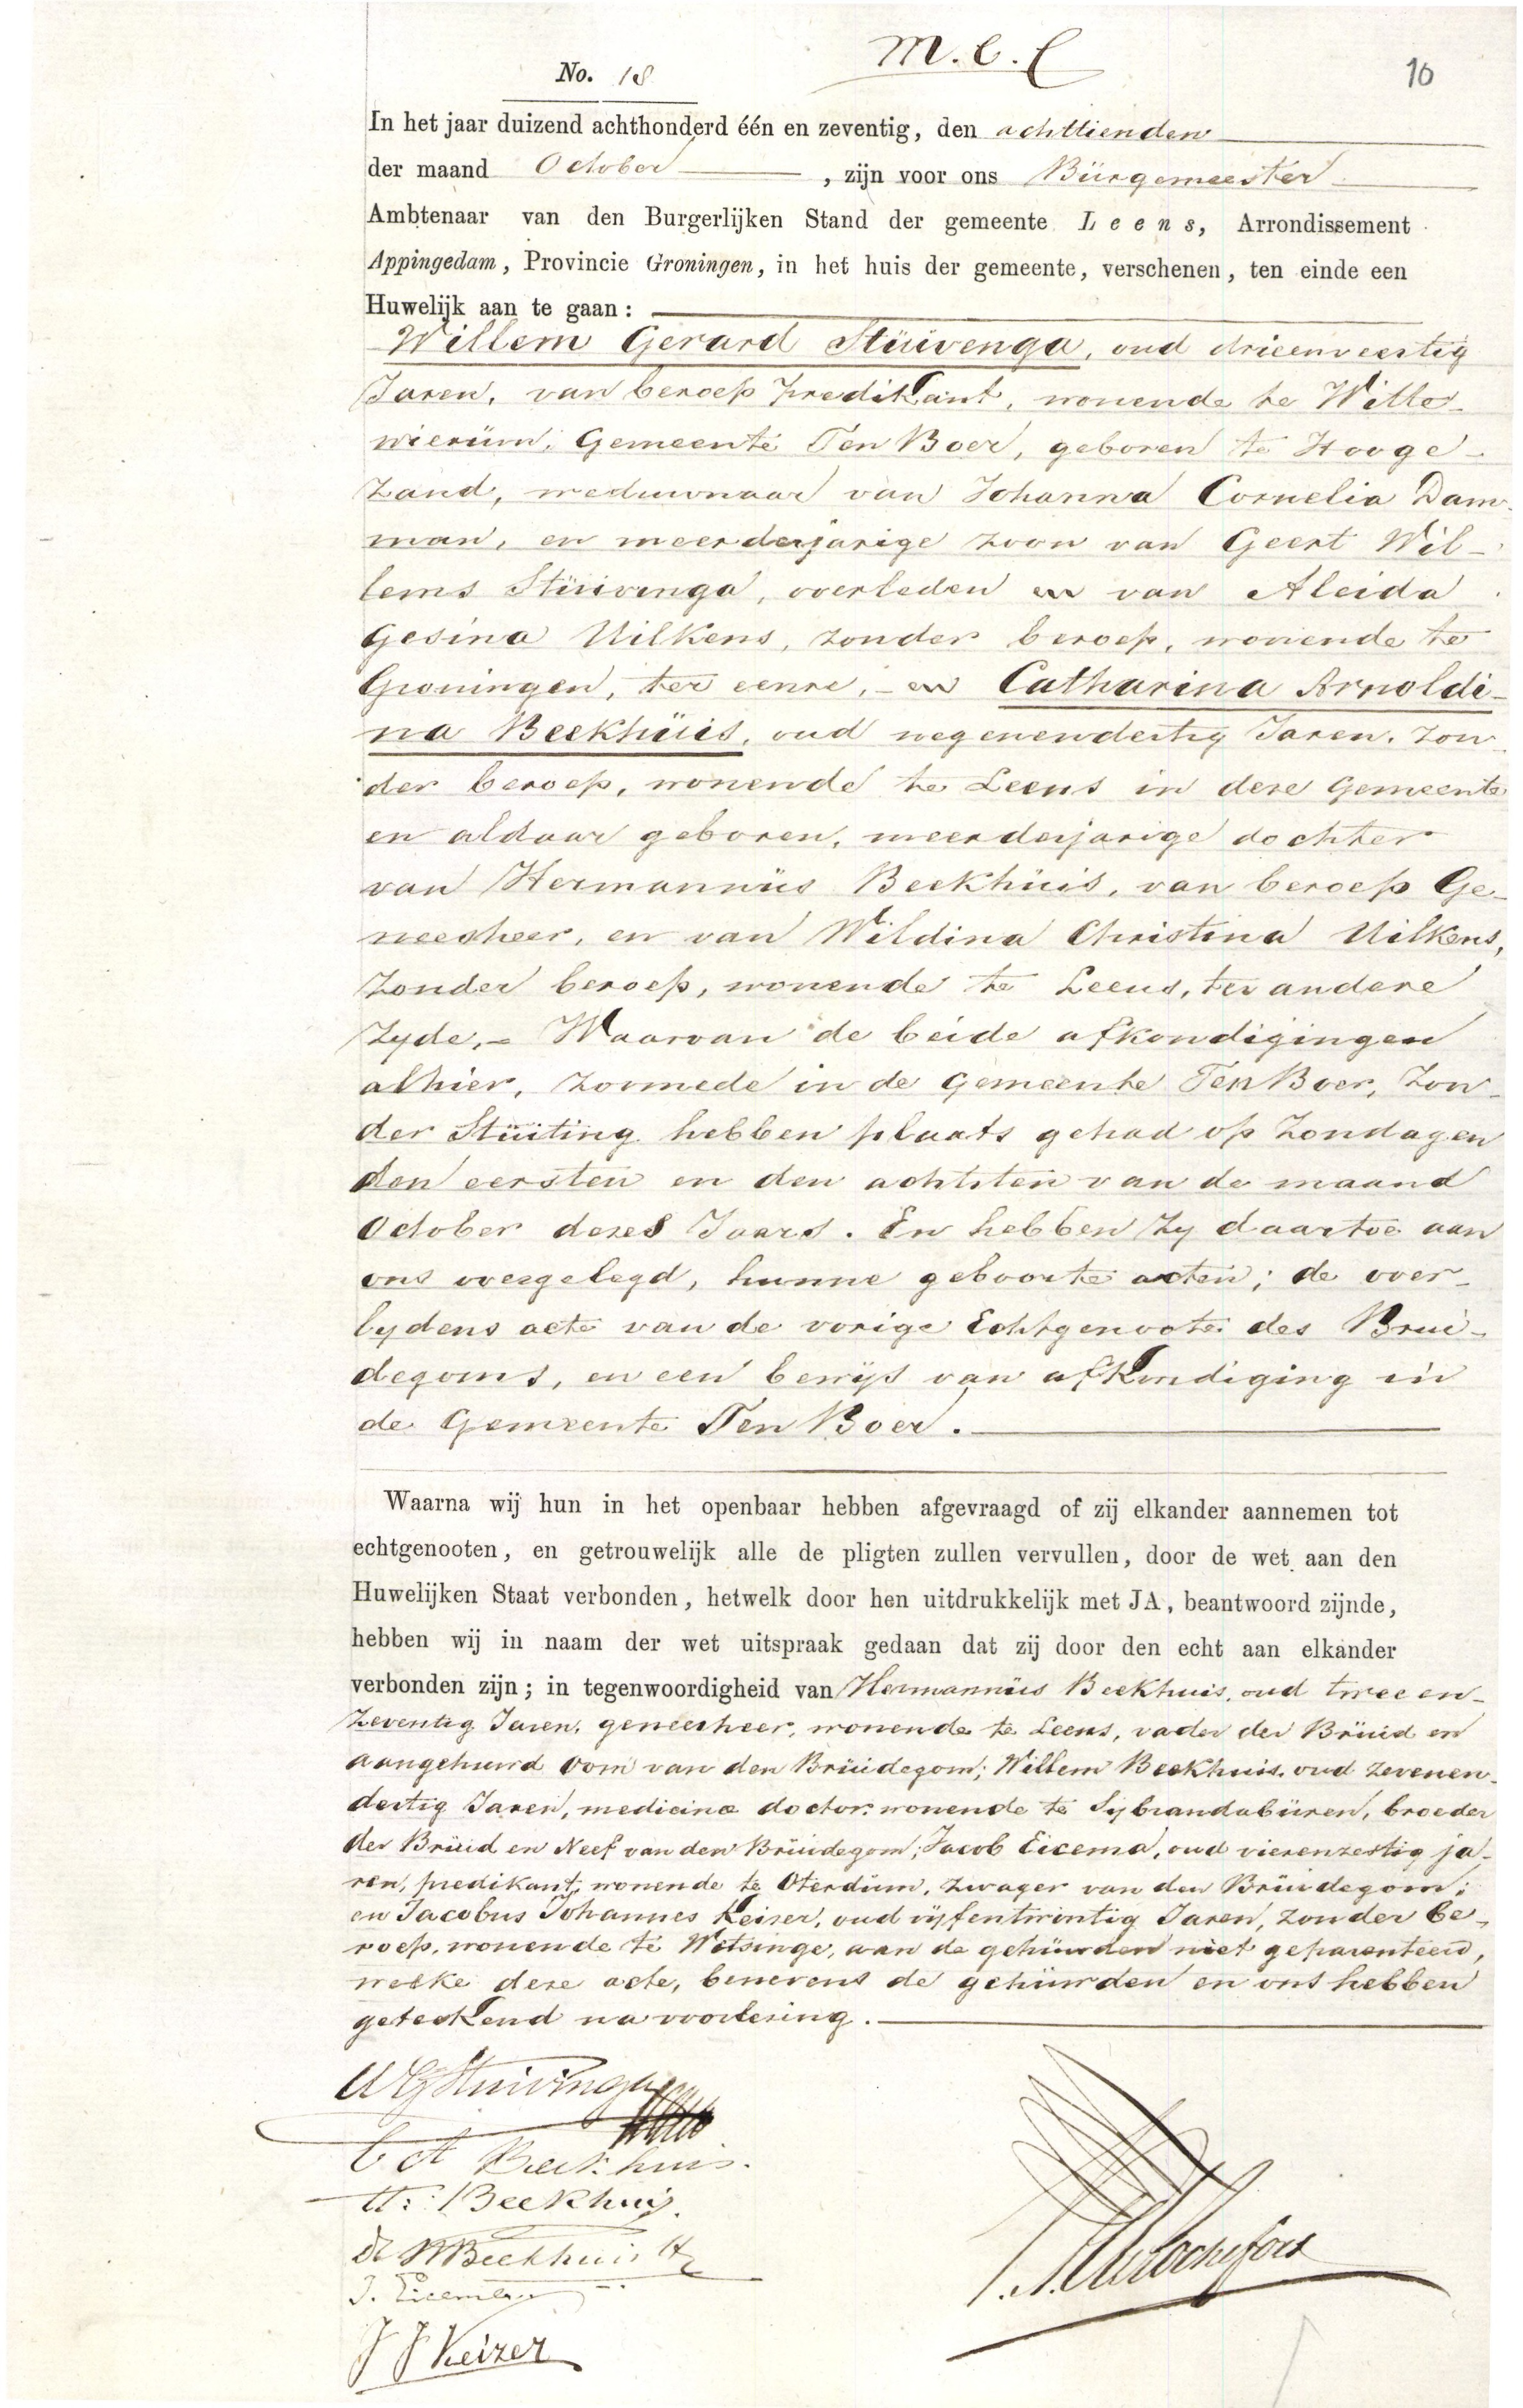 M.C.C
No. 18
10
In het jaar duizend achthonderd één en zeventig, den achttienden
der maand October, zijn voor ons Bürgemeester
Ambtenaar van den Burgerlijken Stand der gemeente Leens, Arrondissement
Appingedam, Provincie Groningen, in het huis der gemeente, verschenen, ten einde een
Huwelijk aan te gaan:
Willem Gerard Stüivenga, oud drieenveertig
Jaren, van beroep predikant, wonende te Witte-
wierüm, Gemeente Ten Boer, geboren te Hooge-
zand, weduwnaar van Johanna Cornelia Dam-
man, en meerderjarige zoon van Geert Wil-
lems Stüivenga, overleden en van Aleida
Gesina Uilkens, zonder beroep, wonende te
Groningen, ter eenre, - en Catharina Arnoldi-
na Beekhüis, oud negenendertig Jaren, zon-
der beroep, wonende te Leens in deze Gemeente
en aldaar geboren, meerderjarige dochter
van Hermannüs Beekhüis, van beroep Ge-
neesheer, en van Wildina Christina Uilkens,
zonder beroep, wonende te Leens, ter andere
zyde, - Waarvan de beide afkondigingen
alhier, zoomede in de Gemeente Ten Boer, zon-
der Stüiting hebben plaats gehad op Zondagen
den eersten en den achtsten van de maand
October dezes Jaars. En hebben zy daartoe aan
ons overgelegd, hunne geboorte acten; de over-
lydens acte van de vorige Echtgenoote des Brui-
degoms, en een bewijs van afkondiging in
de Gemeente Ten Boer.
Waarna wij hun in het openbaar hebben afgevraagd of zij elkander aannemen tot
echtgenooten, en getrouwelijk alle de pligten zullen vervullen, door de wet aan den
Huwelijken Staat verbonden, hetwelk door hen uitdrukkelijk met JA, beantwoord zijnde,
hebben wij in naam der wet uitspraak gedaan dat zij door den echt aan elkander
verbonden zijn; in tegenwoordigheid van Hermannüs Beekhuis, oud twee en-
zeventig Jaren, geneesheer, wonende te Leens, vader der Brüid en
aangehuwd Oom van den Brüidegom; Willem Beekhuis, oud zevenen-
dertig Jaren, medicinae doctor, wonende te Sybrandabüren, broeder
der Brüid en Neef van den Brüidegom; Jacob Eicema, oud vierenzestig ja-
ren, predikant, wonende te Oterdüm, zwager van den Brüidegom;
en Jacobus Johannes Keizer, oud vyfentwintig Jaren, zonder be-
roep, wonende te Wetsinge, aan de gehüwden niet geparenteerd,
welke deze acte, benevens de gehüwden en ons hebben
geteekend na voorlezing.
WG Stuivinga
C A Beekhuis.
H. Beekhuis.
Dr W Beekhuis Hz
J. Eicema
J J Keizer